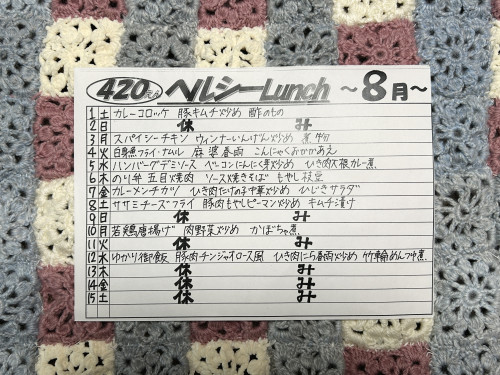 420えん ヘルシーLunch ～8月～
1 土 カレーコロッケ 豚キムチ炒め 酢のもの
2 日 休み
3 月 スパイシーチキン ウィンナーいんげん炒め 煮物
4 火 白身魚フライ・ナムル 麻婆春雨 こんにゃくおかかあえ
5 水 ハンバーグデミソース ベーコンにんにく芽炒め ひき肉大根カレー煮
6 木 のり弁 五目火焼肉 ソース火焼きそば もやし枝豆
7 金 カレーメンチカツ ひき肉たけの子中華炒め ひじきサラダ
8 土 ササミチーズフライ 豚肉もやしピーマン炒め キムチ漬け
9 日 休み
10 月 若鶏唐揚げ 肉野菜炒め かぼちゃ煮
11 火 休み
12 水 ゆかり御飯 豚肉チンジャオロース風 ひき肉にら春雨炒め 竹輪めんつゆ煮
13 木 休み
14 金 休み
15 土 休み